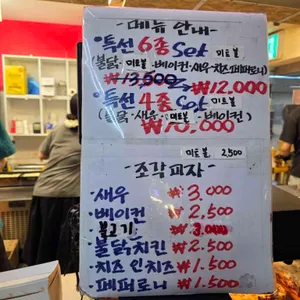 -메뉴 안내-
·특선 6종 Set 미트볼
(불닭·미트볼·베이컨·새우·치즈·페퍼로니)
₩13,600→₩12,000
·특선 4종 Set 미트볼
(불고기·새우·미트볼·베이컨)
₩10,000
미트볼 2,500
-조각피자-
·새우 ₩3,000
·베이컨 ₩2,500
·불고기 ₩3,000
·불닭,치킨 ₩2.500
·치즈 인 치즈 ₩1.500
·페퍼로니 ₩1.500